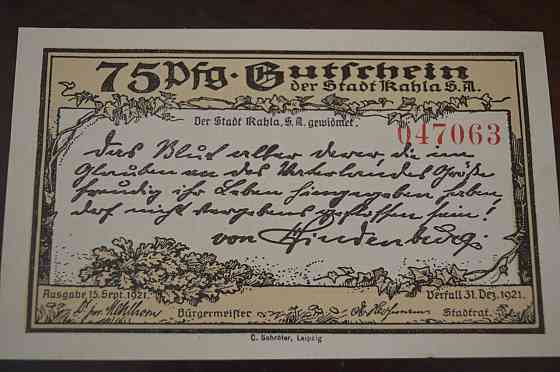 75 Pfg. Gutschein
der Stadt Kahla S.A.
Der Stadt Kahla, S.A. gewidmet.
047063
Das Blut aller derer, die im
Glauben an des Vaterlandes Größe
freudig ihr Leben hingegeben haben,
darf nicht vergebens geflossen sein!
von Hindenburg.
Ausgabe 15. Sept. 1921.
Verfall 31. Dez. 1921.
Bürgermeister
Stadtrat.
C. Schröter, Leipzig